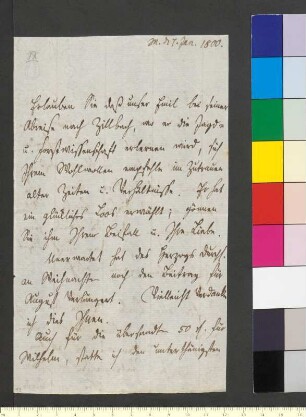 W. d 7. Jan. 1800.
Erlauben Sie daß unser Emil bei seiner
Abreise nach Zillbach, wo er die Jagd-
u. Forstwissenschaft erlernen wird, sich
Ihrem Wohlwollen empfehle im Zutrauen
alter Zeiten u. Verhältnisse. Er hat
ein glückliches Loos erwählt; gönnen
Sie ihm Ihren Beifall u. Ihre Liebe.
Unerwartet hat des Herzogs Durchl.
an Weihnachten noch den Beitrag für
August verlängert. Vielleicht verdanke
ich dies Ihnen.
Auch für die übersandte 50 rh. für
Wilhelm, statte ich den unterthänigsten